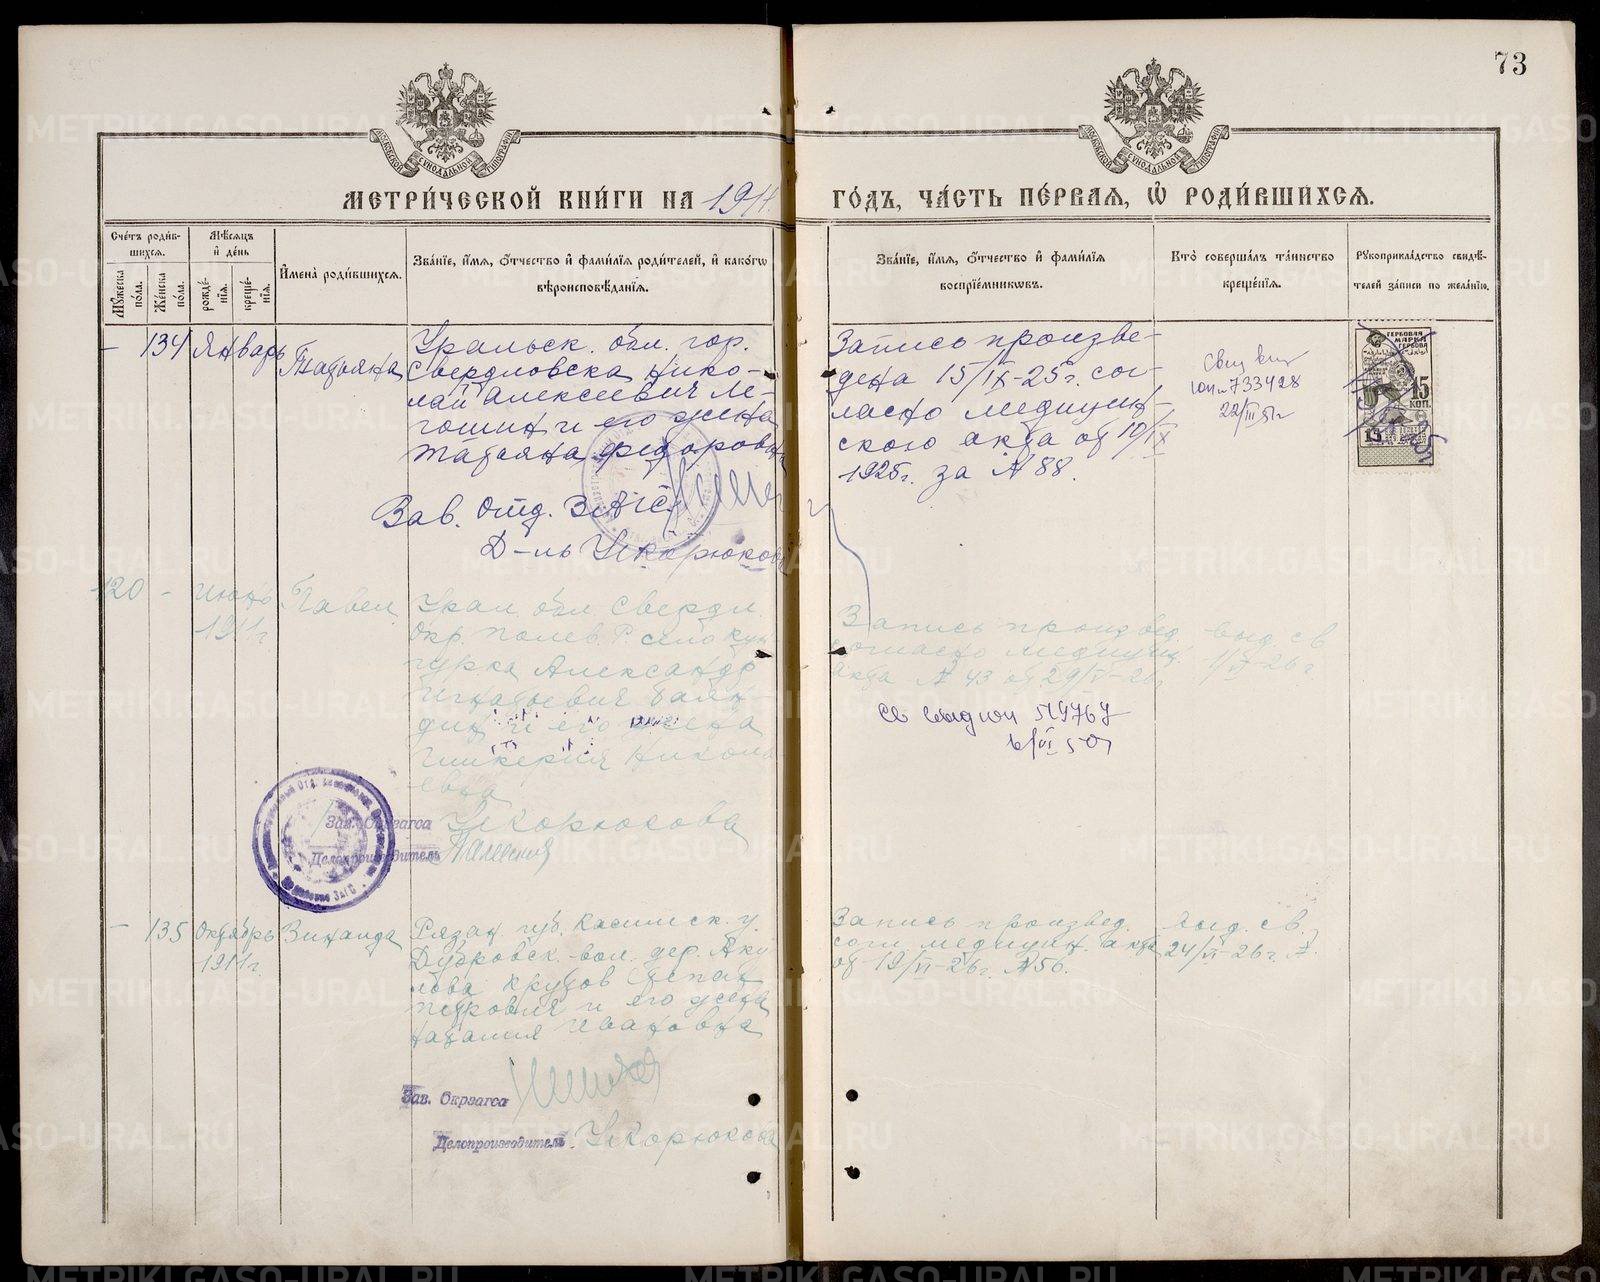 73
МЕТРИ́ЧЕСКОЙ КНИ́ГИ НА 1911
ГО́ДЪ, ЧА́СТЬ ПЕ́РВАЯ, Ѡ РОДИ́ВШИХСЯ.
Сче́тъ роди́вшихся.
Мꙋ́жеска по́ла.
Же́нска по́ла.
Мѣ́сяцъ и де́нь
рожде́нїя.
креще́нїя.
Имена̀ роди́вшихся.
Зва́нїе, и́мя, ѻ́тчество и фами́лїя роди́телей, и како́гѡ вѣроисповѣ́данїя.
Зва́нїе, и́мя, ѻ́тчество и фами́лїя воспрїе́мникѡвъ.
Кто̀ соверша́лъ та́инство креще́нїя.
Рꙋкоприкла́дство свидѣ́телей за́писи по жела́нїю.
- 134 Январь Татьяна
Уральск. обл. гор.
Свердловска Нико-
лай Алексеевич Ле-
гошин и его жена
Татьяна Федоровна
Зав. отд. ЗАГС
Д-ль Ускорюкова
Запись произве-
дена 15/IX-25г. сог-
ласно медицин-
ского акта от 10/IX
1925г. за №88.
733428
ГЕРБОВАЯ
МАРКА
15
КОП.
120 - Июнь
1911г
Павел
Урал. обл. Свердл.
Окр. Полев. Р. село Кун-
гурка Александр
Игнатьевич Балан-
дин и его жена
Гликерия Никола
евна
Зав. Окрзагса Ускорюкова
Делопроизводитель
Запись произвед.
согласно медицин.
акта №43 от 29/V-26г
выд. св
1/VI-26г
- 135 Октябрь
1911г.
Зинаида
Рязан. губ. Касимск. у.
Дубровск. вол. дер. Аку
лова Крусов Степан
Петрович и его жена
Наталия Ивановна
Зав. Окрзагса
Делопроизводитель. Ускорюкова
Запись произвед.
согл. медицин. акта
от 19/VI-26г. №56.
Выд. св.
24/VI-26г.
METRIKI.GASO-URAL.RU